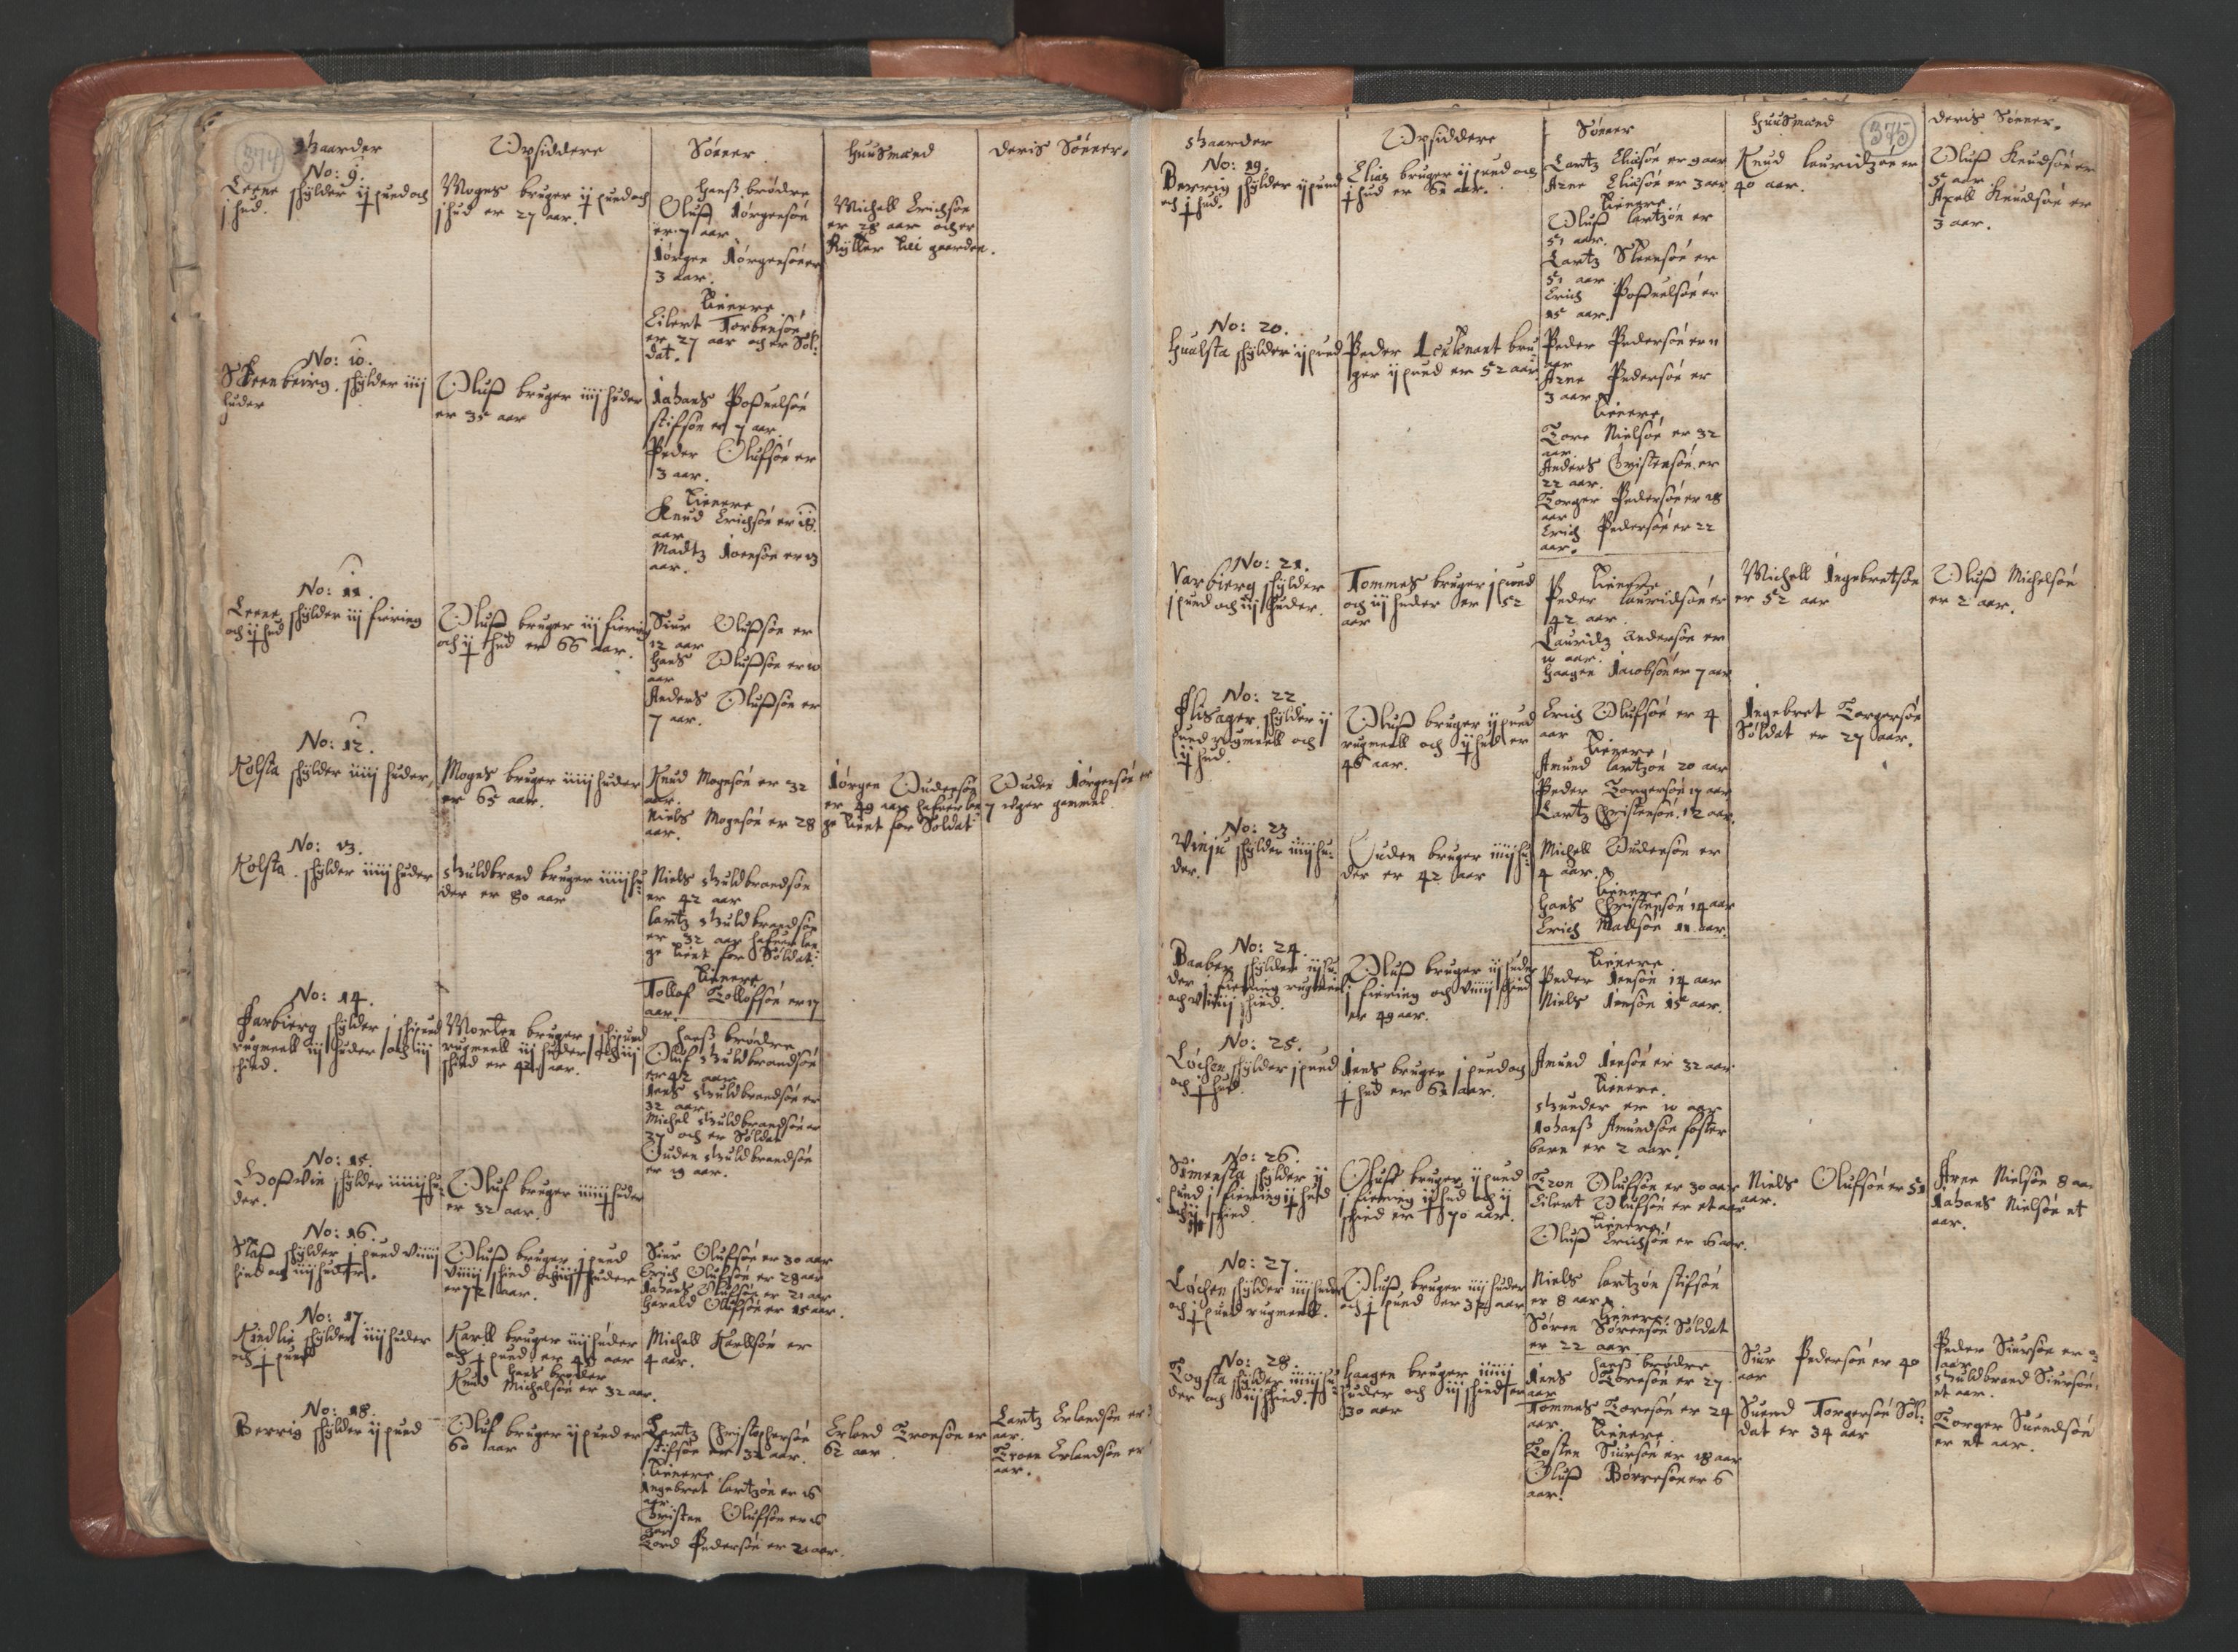 374
Gaarder
Opsiddere
Sønner
Huusmænd
Deris Sønner.
No: 9.
Leene schylder ij pund och
j hud.
Mogns bruger ij pund och
j hud er 27 aar.
Hans brødre
Oluff Jørgensøn
er 7 aar
Jørgen Jørgensøn er
3 aar.
Tienere
Eilert Torbensøn
er 27 aar och er Sol:
dat.
Michell Erichsøn
er 28 aar och er
Rytter till gaarden.
No: 10.
Skeenbierg. schylder iiij
huder
Oluff bruger iiij huder
er 35 aar
Johans Poffuelsøn
stifsøn er 7 aar.
Peder Olufsøn er
3 aar.
Tienere
Knud Erichsøn er 18.
aar
Madtz Joensøn er 13
aar.
No: 11.
Leene schylder iij fiering
och ij hud
Oluff bruger iij fiering
och ij hud er 66 aar.
Siur Oluffsøn er
12 aar
Hans Oluffsøn er 10
aar
Anders Oluffsøn er
7 aar.
No: 12.
Kolsta schylder iiiij huder,
Mogns bruger iiiij huder
er 65 aar.
Knud Mognsøn er 32
aar.
Niels Mognsøn er 28
aar.
Jørgen Oudensøn
er 49 aar hafuer len
ge tient for Soldat
Ouden Jørgensøn er
7 uger gammel.
No: 13.
Kolsta. schylder iiiij huder
Guldbrand bruger iiiij hu
der er 80 aar
Niels Guldbrandsøn
er 42 aar
Lartz Guldbrandsøn
er 32 aar hafuer len
ge tient for Soldat.
Tienere
Tollof Tollofsøn er 17
aar.
No: 14.
Farbierg schylder j schipund
rugmeell iij huder och iij
schind.
Morten bruger j schipund
rugmeell iij huder och iij
schind er 42 aar.
Hans brødre
Oluf Guldbrandsøn
er 42 aar
Jens Guldbrandsøn er
32 aar
Michel Guldbrandsøn er
37 och er Soldat
Ouden Guldbrandsøn
er 19 aar.
No: 15.
schylder iiiij hu
der.
Oluf bruger iiiij huder
er 32 aar.
No: 16.
schylder j pund viiij
schind och iiij huder.
Oluff bruger j pund
viiij schind och iiij huder
er 72 aar.
Siur Olufsøn er 30 aar
Erich Olufsøn er 28 aar
Johans Olufsøn er 21 aar
Harald Olufsøn er 15 aar.
No: 17.
Kindlie schylder iiij huder
och j pund
Karll bruger iiij huder
och j pund er 43 aar
Hans broder
Knud Michelsøn er 32 aar.
Michell Karllsøn er
4 aar.
No: 18.
Berrig schylder ij pund
Oluf bruger ij pund er
60 aar
Lartz Christophersøn
stifsøn er 32 aar.
Tienere
Ingebret Lartzøn er 16
aar.
Cristen Olufsøn er 16
aar
Tord Pedersøn er 21 aar.
Erlend Tronsøn er
62 aar
Lartz Erlandsøn er
aar.
Troen Erlandsøn er
aar.
375
Gaarder
Opsiddere
Sønner
Huusmænd
Deris Sønner.
No: 19.
Berrig schylder ij pund
och j hud.
Elias bruger ij pund och
j hud er 61 aar.
Lartz Eliasøn er 9 aar
Arne Eliasøn er 3 aar
Tienere
Oluff Lartzøn er
51 aar.
Lartz Steensøn er
51 aar
Erich Poffuelsøn er
15 aar.
Knud Lauridzøn er
40 aar.
Oluff Knudsøn er
5 aar
Axell Knudsøn er
3 aar.
No: 20.
Hualsta schylder ij pund
Peder Leutenant bru
ger ij pund er 52 aar
Peder Pedersøn er 11
aar
Arne Pedersøn er
3 aar
Tienere
Tore Nielsøn er 32
aar.
Anders Cristensøn er
22 aar.
Torger Pedersøn er 18
aar
Erich Pedersøn er 22
aar.
No: 21.
Varbierg schylder
j pund och iij huder.
Tommes bruger j pund
och iij huder er 52
aar
Tienere
Peder Lauridsøn er
42 aar.
Lauritz Andersøn er
10 aar.
Haagen Jacobsøn er 7 aar
Michell Ingebretsøn
er 52 aar
Oluff Michelsøn
er 2 aar.
No: 22
Flisager schylder ij
pund rugmeell och
ij hud.
Oluff bruger ij pund
rugmeell och ij hud er
46 aar.
Erich Olufsøn er 4
aar
Tienere
Amund Lartzøn 20 aar
Peder Torgersøn 17 aar
Lartz Christensøn 12 aar.
Ingebret Torgersøn
Soldat er 27 aar.
No: 23
Vinju schylder iiij hu:
der.
Ouden bruger iiij hu
der er 42 aar
Michell Oudensøn er
4 aar.
Tienere
Hans Christensøn 14 aar
Erich Madsøn 11 aar.
No: 24.
schylder iij hu
der j fiering rugmeell
och viiij schind.
Oluff bruger iij huder
j fiering och viiij schind
er 49 aar.
Tienere
Peder Jensøn 14 aar
Niels Jensøn 15 aar.
No: 25.
Løchen schylder j pund
och j hud.
Jens bruger j pund och
j hud er 61 aar.
Amund Jensøn er 32 aar
Tienere.
Gunder er 10 aar
Johans Amundsøn foster
barn er 2 aar.
No: 26.
Simensta schylder ij
pund j fiering ij hud
och ij schind.
Oluff bruger ij pund
j fiering ij hud och ij
schind er 70 aar.
Tron Olufsøn er 30 aar
Eilert Olufsøn er et aar
Tienere
Oluff Erichsøn er 16 aar.
Niels Olufsøn er 51
aar.
Arne Nielsøn 8 aar
Johans Nielsøn et
aar.
No: 27.
Løchen schylder iiij huder
och j pund rugmeell.
Oluff bruger iiij huder
och j pund er 32 aar
Niels Lartzøn stifsøn
er 8 aar
Tienere
Søren Sørensøn Soldat
er 22 aar
No: 28.
schylder iiiij hu
der och iij schind.
Haagen bruger iiiij
huder och iij schind er
30 aar
Hans brødre
Jens Toresøn er 27
aar
Tommes Toresøn er 24
aar
Tienere
Tosten Siursøn er 18 aar
Oluff Børresøn er 6
aar.
Siur Pedersøn er 40
aar
Suend Torgersøn Sol:
dat er 34 aar
Peder Siursøn er
aar
Guldbrand Siursøn
et aar.
Torger Suendsøn
er et aar.